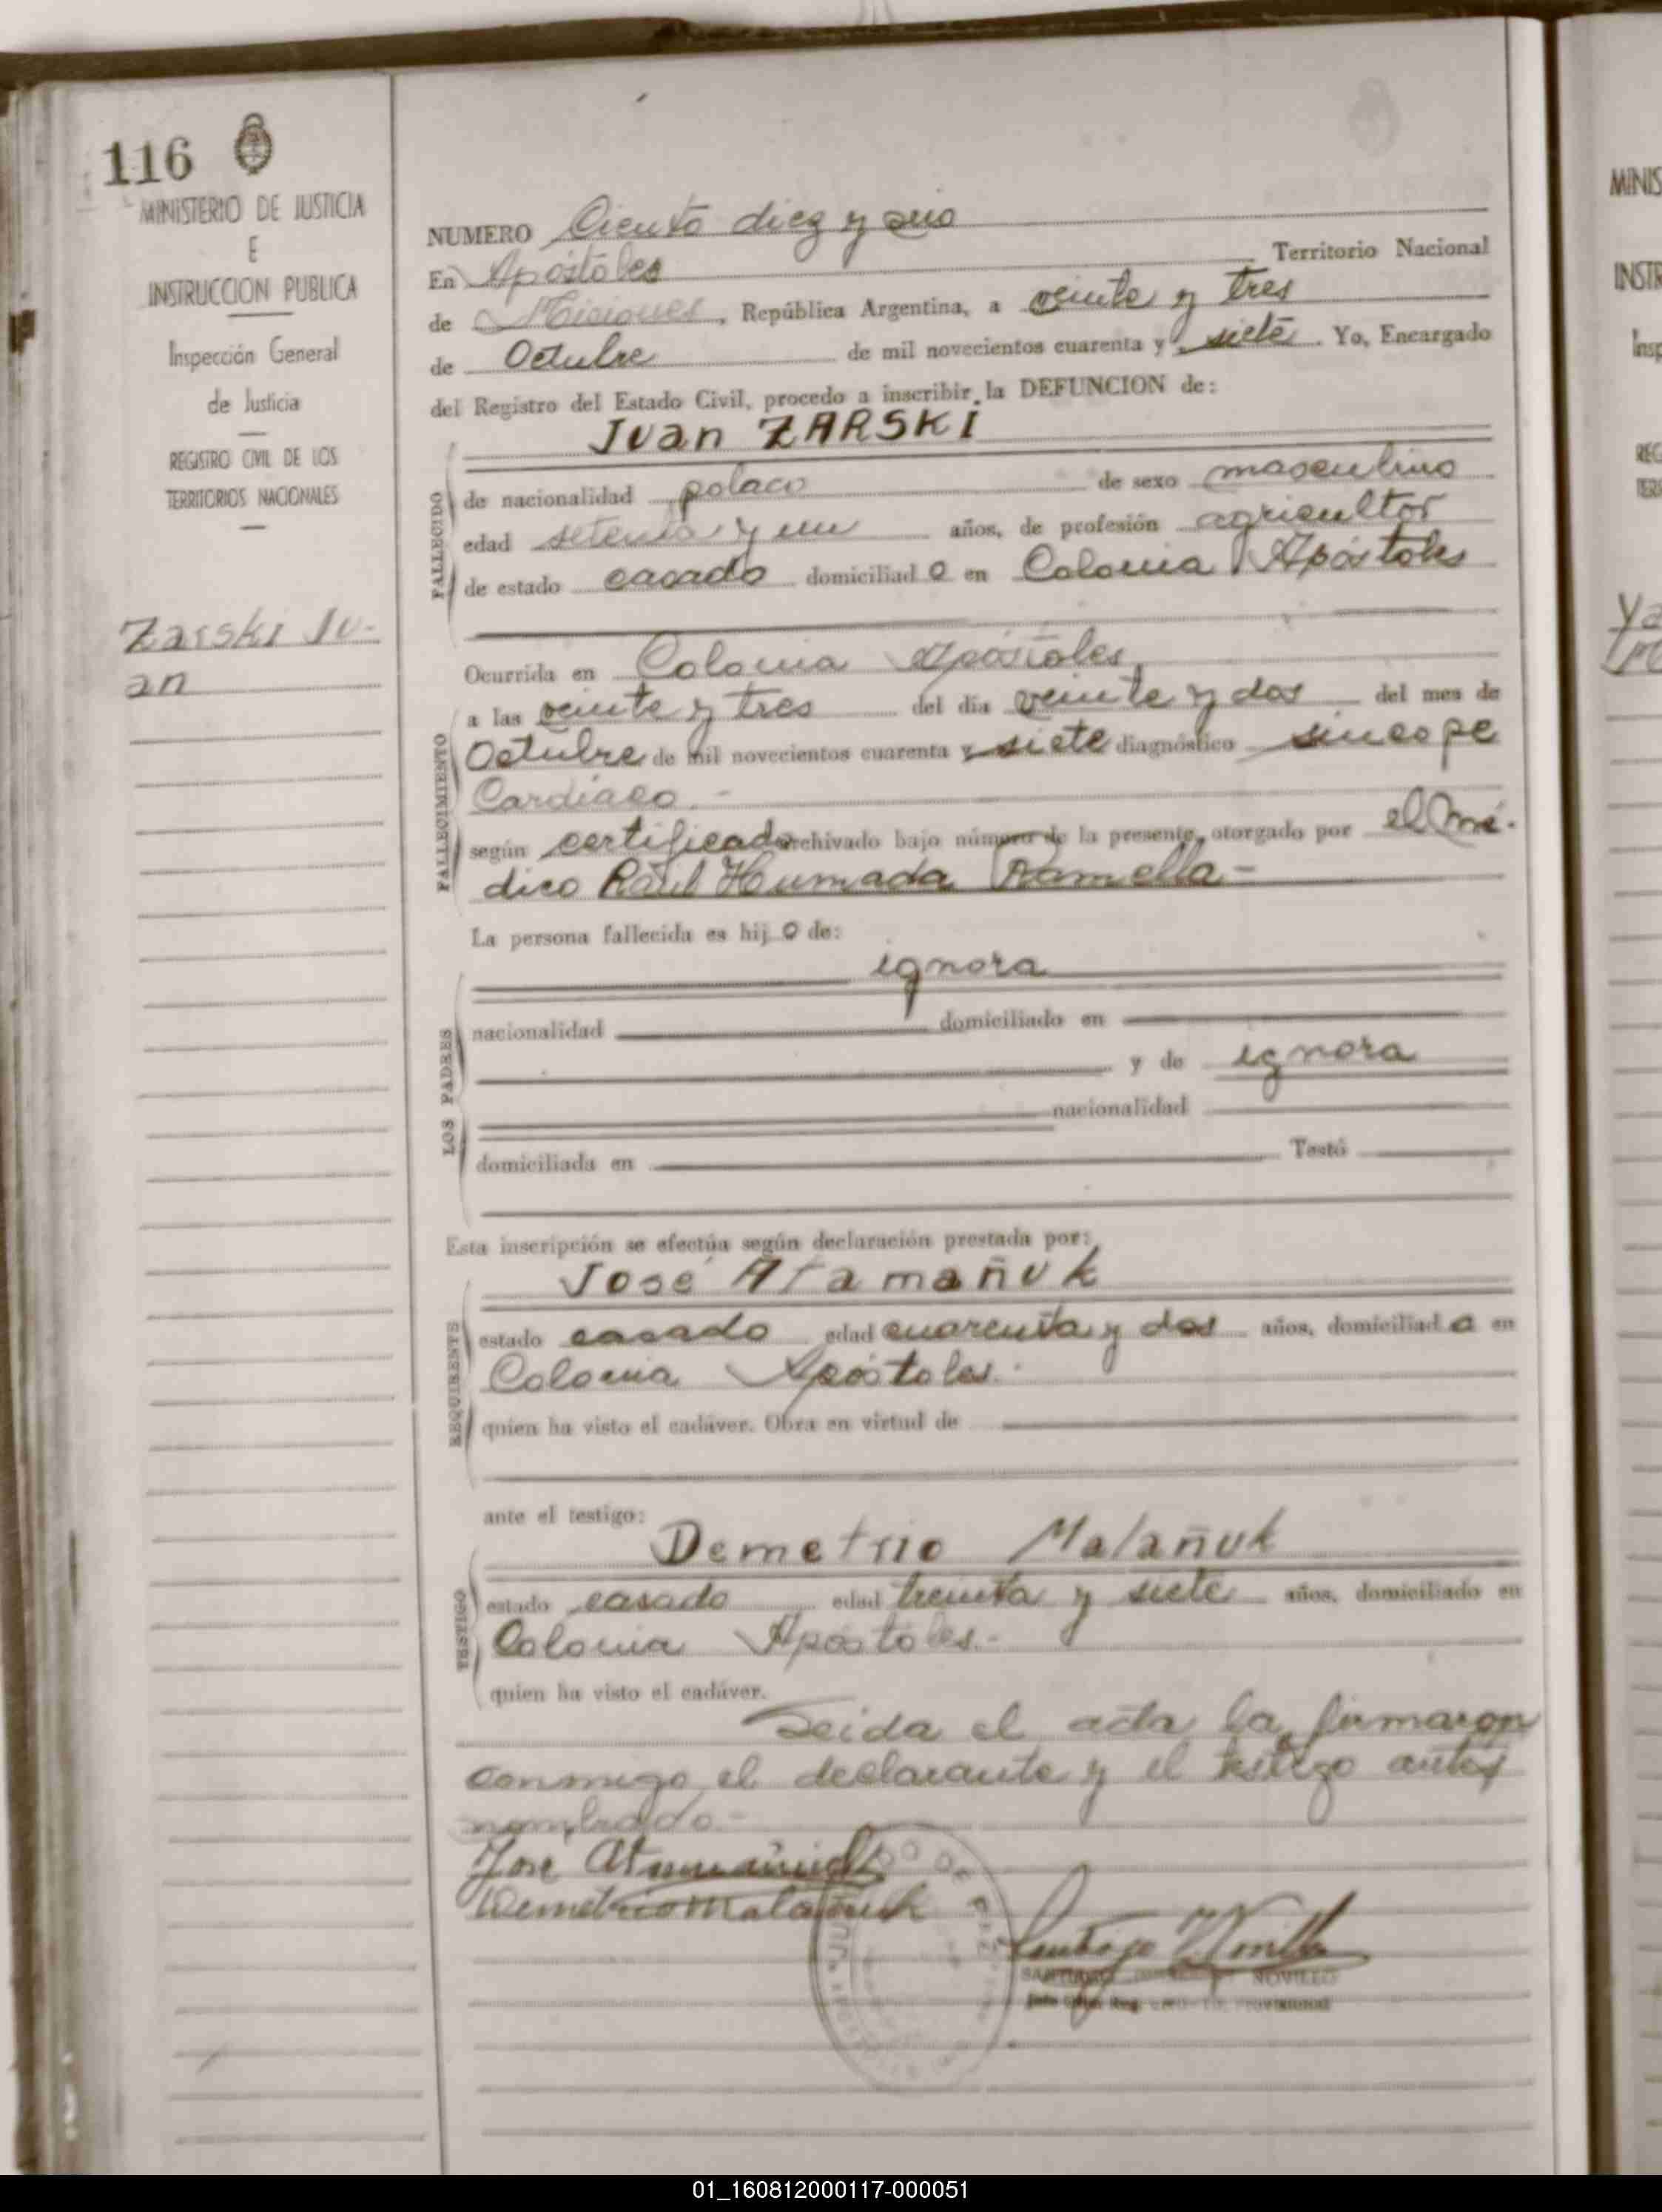 116
MINISTERIO DE JUSTICIA
E
INSTRUCCION PUBLICA
Inspección General
de Justicia
REGISTRO CIVIL DE LOS
TERRITORIOS NACIONALES
Zarski Ju-
an
NUMERO Ciento diez y seis
En Apóstoles Territorio Nacional
de Misiones, República Argentina, a veinte y tres
de Octubre de mil novecientos cuarenta y siete. Yo, Encargado
del Registro del Estado Civil, procedo a inscribir la DEFUNCION de:
Juan ZARSKI
FALLECIDO
de nacionalidad polaco de sexo masculino
edad setenta y un años, de profesión agricultor
de estado casado domiciliado en Colonia Apóstoles
Ocurrida en Colonia Apóstoles,
FALLECIMIENTO
a las veinte y tres del día veinte y dos del mes de
Octubre de mil novecientos cuarenta y siete diagnóstico sincope
Cardíaco.-
según certificado archivado bajo número de la presente, otorgado por el mé-
dico Raúl Humada Ramella-
La persona fallecida es hijo de:
ignora
LOS PADRES
nacionalidad domiciliado en
y de ignora
nacionalidad
domiciliada en Testó
Esta inscripción se efectúa según declaración prestada por:
José Atamañuk
REQUIRENTE
estado casado edad cuarenta y dos años, domiciliado en
Colonia Apóstoles.
quien ha visto el cadáver. Obra en virtud de
ante el testigo:
Demetrio Malañuk
TESTIGO
estado casado edad treinta y siete años, domiciliado en
Colonia Apóstoles.-
quien ha visto el cadáver.
Leida el acta la firmaron
conmigo, el declarante y el testigo antes
nombrado.-
José Atamañuk
Demetrio Malañuk
Santiago Novillo
SANTIAGO NOVILLO
MINIS
INSTR
Insp
REG
TER
01_160812000117-000051